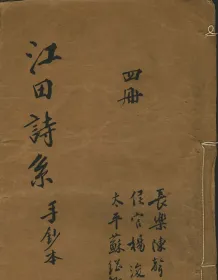 江田詩系 手鈔本
四冊
長樂陳
侯官楊浚
太平蘇